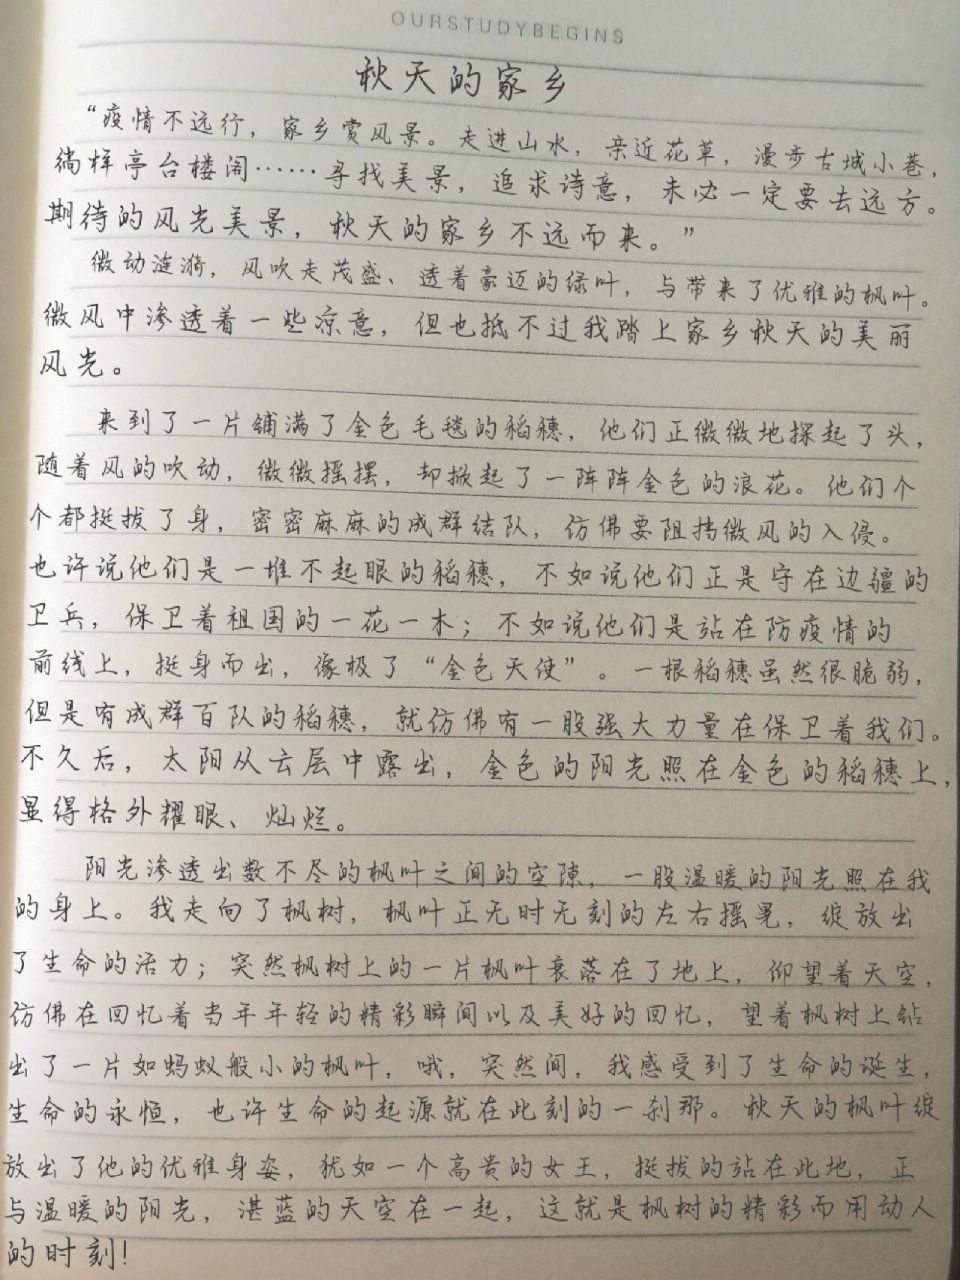 OURSTUDYBEGINS
秋天的家乡
“疫情不远行，家乡赏风景。走进山水，亲近花草，漫步古城小巷，
徜徉亭台楼阁……寻找美景，追求诗意，未必一定要去远方。
期待的风光美景，秋天的家乡不远而来。”
微动涟漪，风吹走茂盛、透着豪迈的绿叶，与带来了优雅的枫叶。
微风中渗透着一些凉意，但也抵不过我踏上家乡秋天的美丽
风光。
来到了一片铺满了金色毛毯的稻穗，他们正微微地探起了头，
随着风的吹动，微微摇摆，却掀起了一阵阵金色的浪花。他们个
个都挺拔了身，密密麻麻的成群结队，仿佛要阻挡微风的入侵。
也许说他们是一堆不起眼的稻穗，不如说他们正是守在边疆的
卫兵，保卫着祖国的一花一木；不如说他们是站在防疫情的
前线上，挺身而出，像极了“金色天使”。一根稻穗虽然很脆弱，
但是有成群百队的稻穗，就仿佛有一股强大力量在保卫着我们。
不久后，太阳从云层中露出，金色的阳光照在金色的稻穗上，
显得格外耀眼、灿烂。
阳光渗透出数不尽的枫叶之间的空隙，一股温暖的阳光照在我
的身上。我走向了枫树，枫叶正无时无刻的左右摇晃，绽放出
了生命的活力；突然枫树上的一片枫叶衰落在了地上，仰望着天空，
仿佛在回忆着当年年轻的精彩瞬间以及美好的回忆，望着枫树上钻
出了一片如蚂蚁般小的枫叶，哦，突然间，我感受到了生命的诞生，
生命的永恒，也许生命的起源就在此刻的一刹那。秋天的枫叶绽
放出了他的优雅身姿，犹如一个高贵的女王，挺拔的站在此地，正
与温暖的阳光，湛蓝的天空在一起，这就是枫树的精彩而用动人
的时刻！